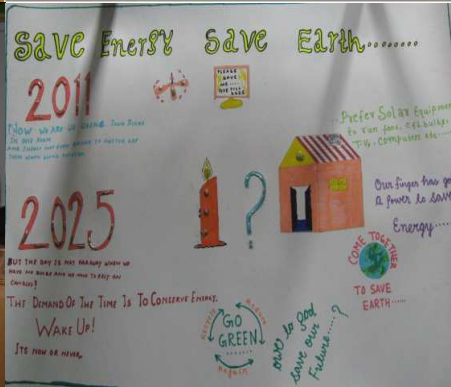 Save Energy Save Earth........
2011
PLEASE
SAVE
ME
NOW WE ARE USING
IN ONE ROOM
Prefer Solar Equipment
to run fans, CFL bulbs,
T.V., Computers etc....
Our finger has got
A power to save
Energy.....
2025
?
BUT THE DAY IS NOT FARAWAY WHEN WE
HAVE NO BULBS AND WE HAVE TO RELY ON
CANDLES!
THE DEMAND OF THE TIME IS TO CONSERVE ENERGY.
WAKE UP!
ITS NOW OR NEVER.
GO
GREEN
COME TOGETHER
TO SAVE
EARTH......
save our
Future.....?